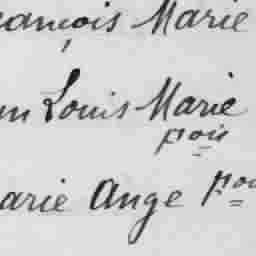 ançois Marie
Louis Marie
pois
arie Ange